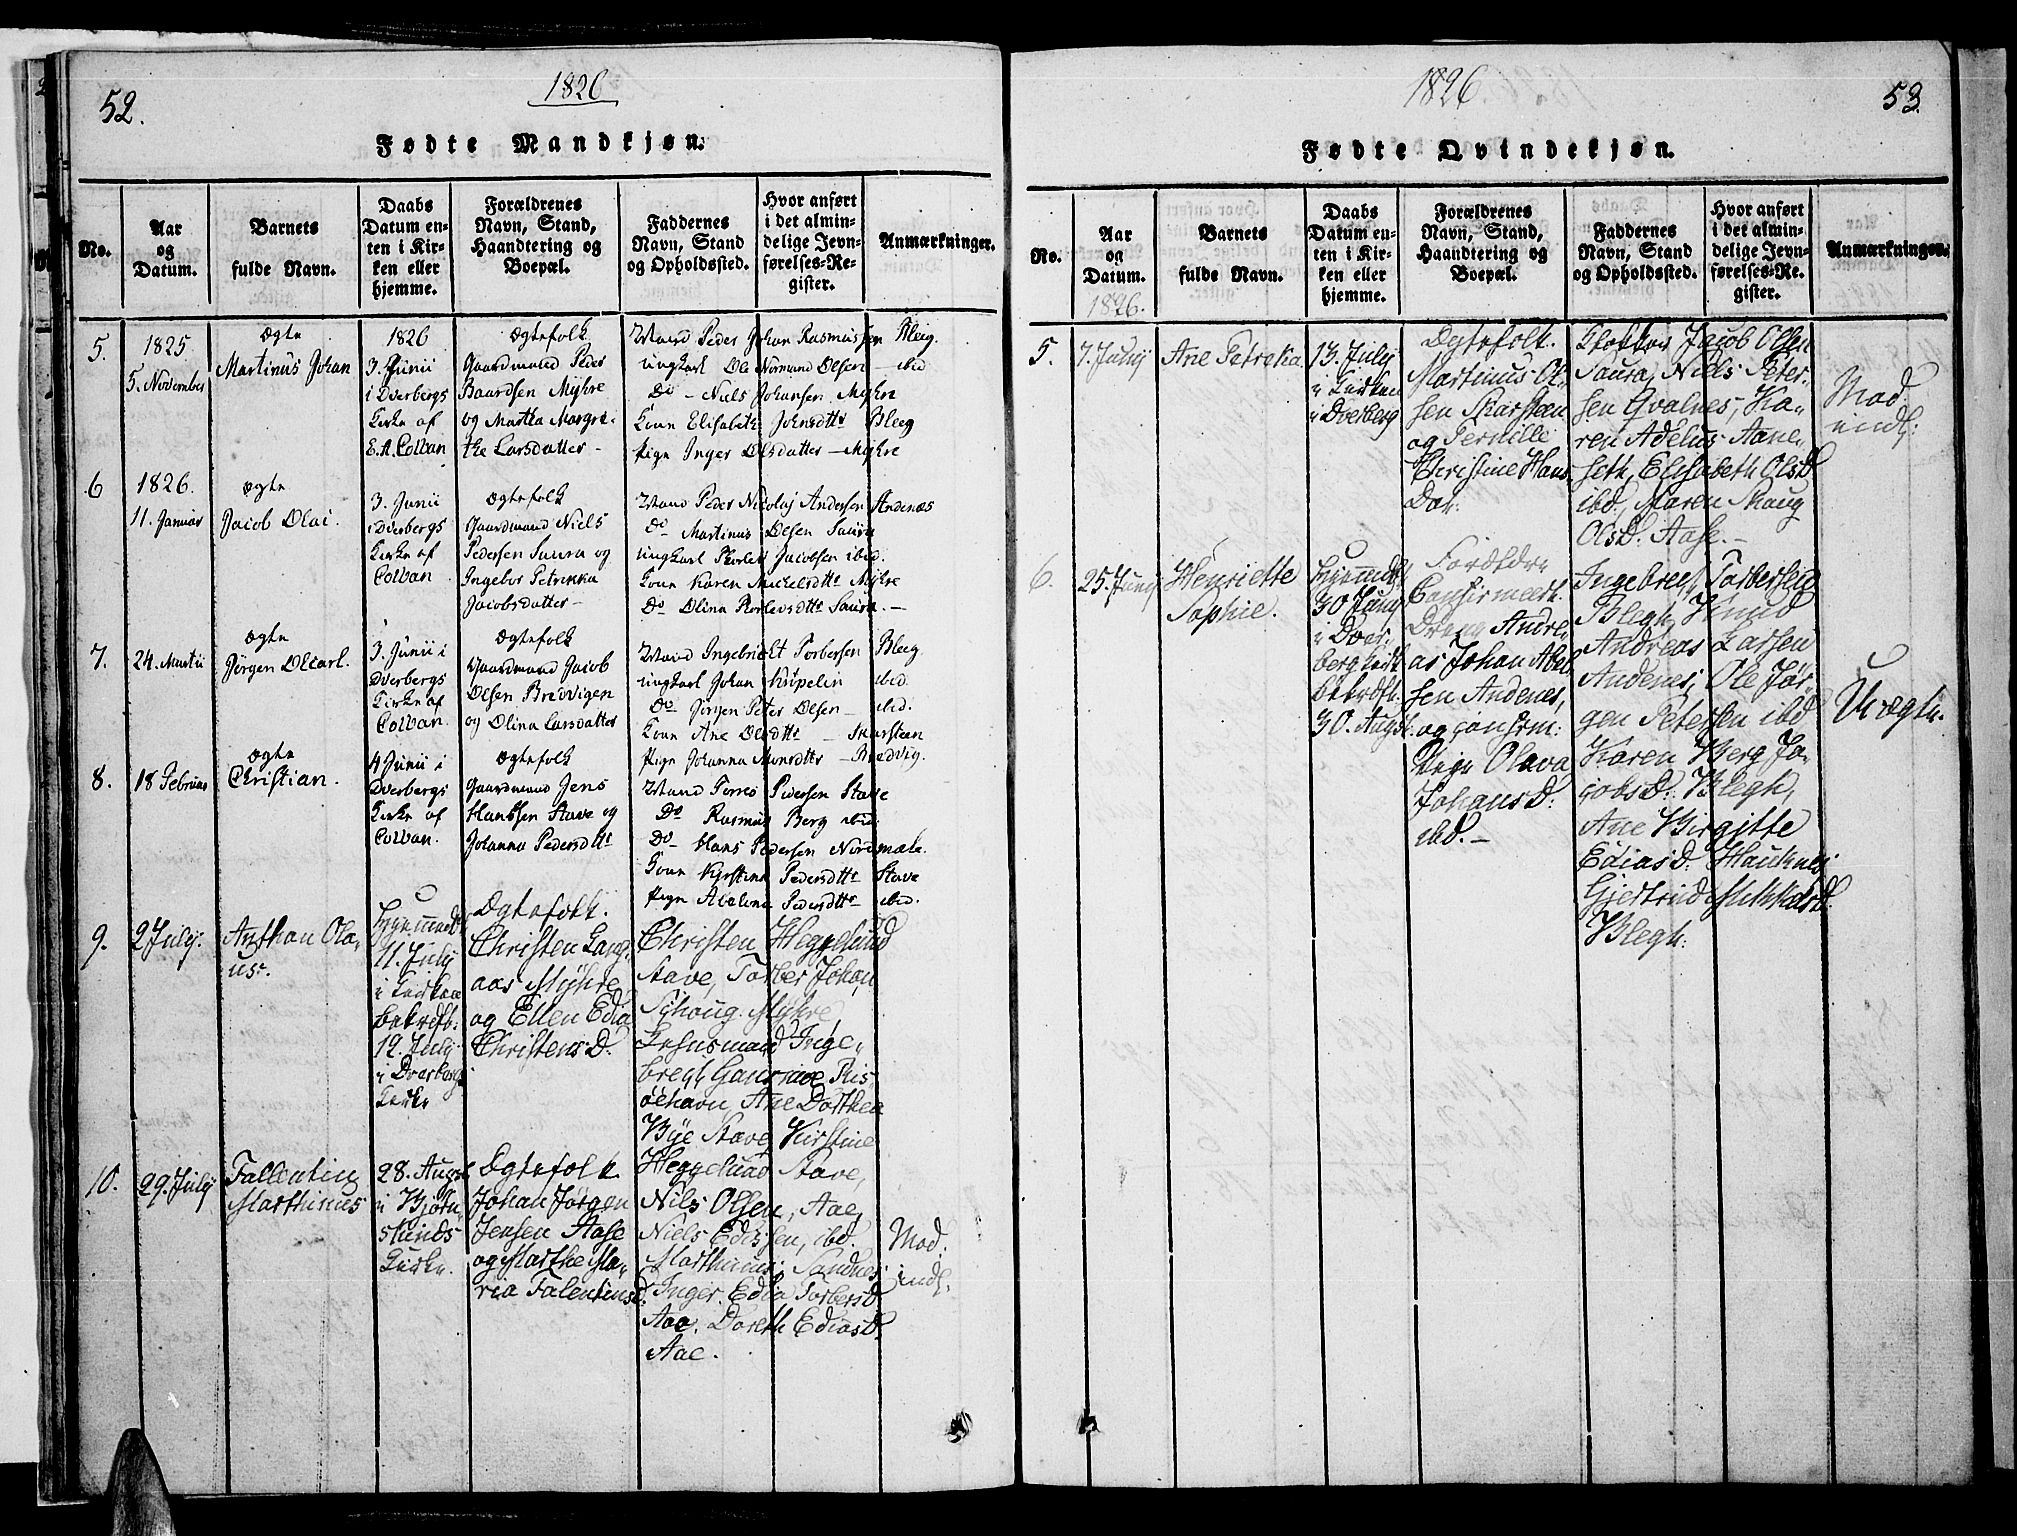 52.
1826
Fødte Mandkjøn.
No.
Aar
og
Datum.
Barnets
fulde Navn.
Daabs
Datum en-
ten i Kir-
ken eller
hjemme.
Forældrenes
Navn, Stand,
Haandtering og
Boepæl.
Faddernes
Navn, Stand
og Opholdssted.
Hvor anført
i det almin-
delige Jevn-
førelses-Re-
gister.
Anmærkninger.
5.
1825
5. November
ægte
Martinus Johan
1826
3. Junii
i Dverbergs
Kirke af
E.A. Colban
Ægtefolk
Gaardmand Peder
Baardsen Myhre
og Martha Margre-
the Larsdatter -
Mand Peder Johan Rasmussen Bleeg.
Ungkarl Ole Normand Olsen - ibid
Do - Niels Johansen Myhre
Kone Elisabeth Johnsdttr Bleeg
Pige Inger Olsdatter - Myhre
6
1826.
11. Januar
ægte
Jacob Olai.
3. Junii
i Dverbergs
Kirke af
Colban
Ægtefolk
Gaardmand Niels
Pedersen Saura og
Ingebor Petrikka
Jacobsdatter -
Mand Peder Nicolaj Andersen Andenæs
Do Martinus Olsen Saura
Ungkarl Jacobsen ibid.
Kone Karen Michelsdttr Myhre
Do Olina Saura. -
7.
24. Martii
ægte
Jørgen
3. Junii i
Dverbergs
Kirke af
Colban.
Ægtefolk
Gaardmand Jacob
Olsen Bredvigen
og Olina Larsdatter
Mand Ingebrict Torbersen Bleeg
Ungkarl Johan ibid.
Do Jørgen Peter Olsen - ibid.
Kone Ane Olsdttr - Skarsteen
Pige Johanna Monsdttr - Bredvig.
8.
18 Februar
ægte
Christian.
4 Junii i
Dverbergs
Kirke af
Colban.
Ægtefolk
Gaardmand Jens
Hansen Stave og
Johanna Pedersdttr
Mand Torres Pedersen Stave
Do Rasmus Berg ibid:
Do Hans Pedersen Nordmæle.
Kone Kirstina Pedersdttr Stave
Pige Abelona Pedersdttr ibid.
9.
2 July.
Anthon Ola-
us.
11. July
i Kirken
bekræft:
12. July
i Dverberg
Kirke
Ægtefolk.
Christen Gang-
aas Myhre
og Ellen Edia
Christensd:
Christen Heggelund
Stave, Torber Johan
Myhre,
Lensmand Inge-
bregt Ris-
øehavn, Ane Dorthea
Bye Stave, Kirstine
Heggelund Stave,
10.
29. July
Fallentin
Marthinus
28. Augst
i Bjørn-
skinds
Kirke.
Ægtefolk
Johan Jørgen
Jensen Aase
og Marthe Ma-
ria Falentinsd:
Nils Olsen, Aae,
Niels Edissen, ibd.
Marthinus Sandnes
Inger Edia Torbersd
Aae, Doreth Ediasd.
Aae.
Mod:
indl.
1826
53
Fødte Qvindekjøn.
No.
Aar
og
Datum.
1826.
Barnets
fulde Navn.
Daabs
Datum en-
ten i Kir-
ken eller
hjemme.
Forældrenes
Navn, Stand,
Haandtering og
Boepæl.
Faddernes
Navn, Stand
og Opholdssted.
Hvor anført
i det almin-
delige Jevn-
førelses-Re-
gister.
Anmærkninger.
5.
7. Juny
Ane Petrekia
13. July
i Kirken
i Dverberg
Ægtefolk.
Martinus Ol-
sen Skarsteen
og Pernille
Christine Hans-
Dar:
Klokker Jacob Olsen
Saura, Niels Peter-
sen Qvalnes, Ka-
ren Adelus Aane-
seth, Elisabeth Olsd
ibd, Maren Skaug
Olsd: Aase. -
Mod:
indl:
6.
25. Juny
Henriette
Sophie.
30 Juny
i Dver-
berg Kirk
bekræft:
30. Augst.
Forældre
Confirmeert
Dreng Andre-
as Johan Abel-
sen Andenes,
og confirm:
Pige Olava
Johansd:
ibd. -
Ingebregt Torbersen
Blegh, Knud
Andreas Larsen
Andenes, Ole Jør-
gen Petersen ibd
Karen Berg Ja-
cobsd: Blegh,
Ane Birgitte
Ediasd: Hauknes
Gjertrud Mikkelsd:
Blegh.
Uægte.